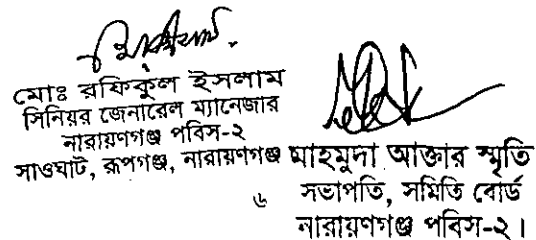 মোঃ রফিকুল ইসলাম
সিনিয়র জেনারেল ম্যানেজার
নারায়ণগঞ্জ পবিস-২
সাওঘাট, রূপগঞ্জ, নারায়ণগঞ্জ
মাহমুদা আক্তার স্মৃতি
সভাপতি, সমিতি বোর্ড
নারায়ণগঞ্জ পবিস-২।
৬